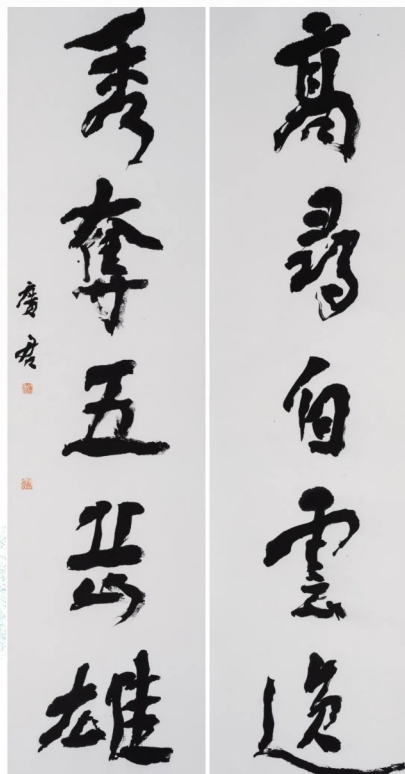 高尋白雲逸
秀奪五岳雄
廣君